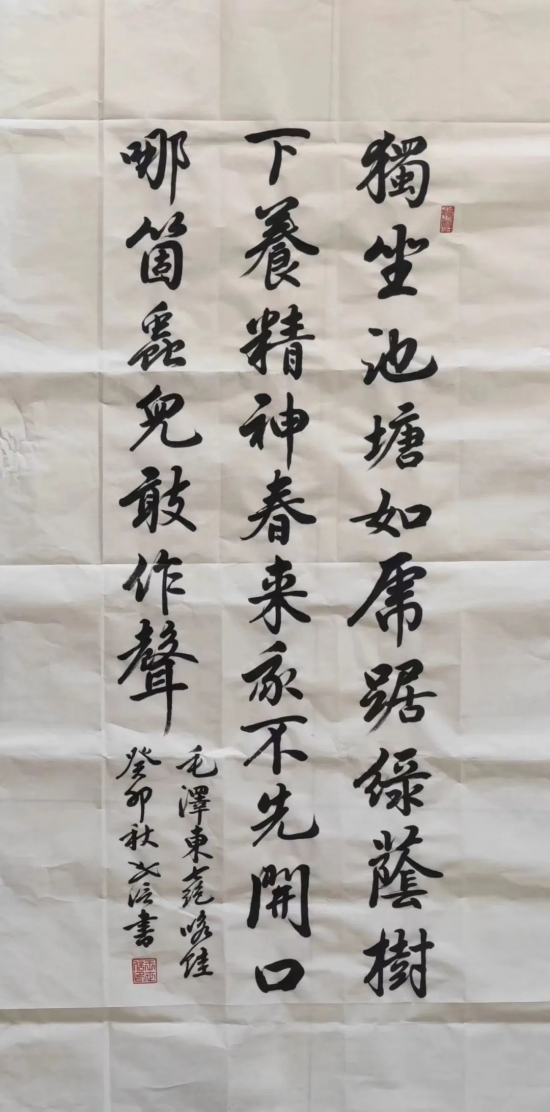 獨坐池塘如虎踞綠蔭樹
下養精神春来我不先開口
哪箇蟲兒敢作聲
毛澤東七絕咏蛙
癸卯秋書